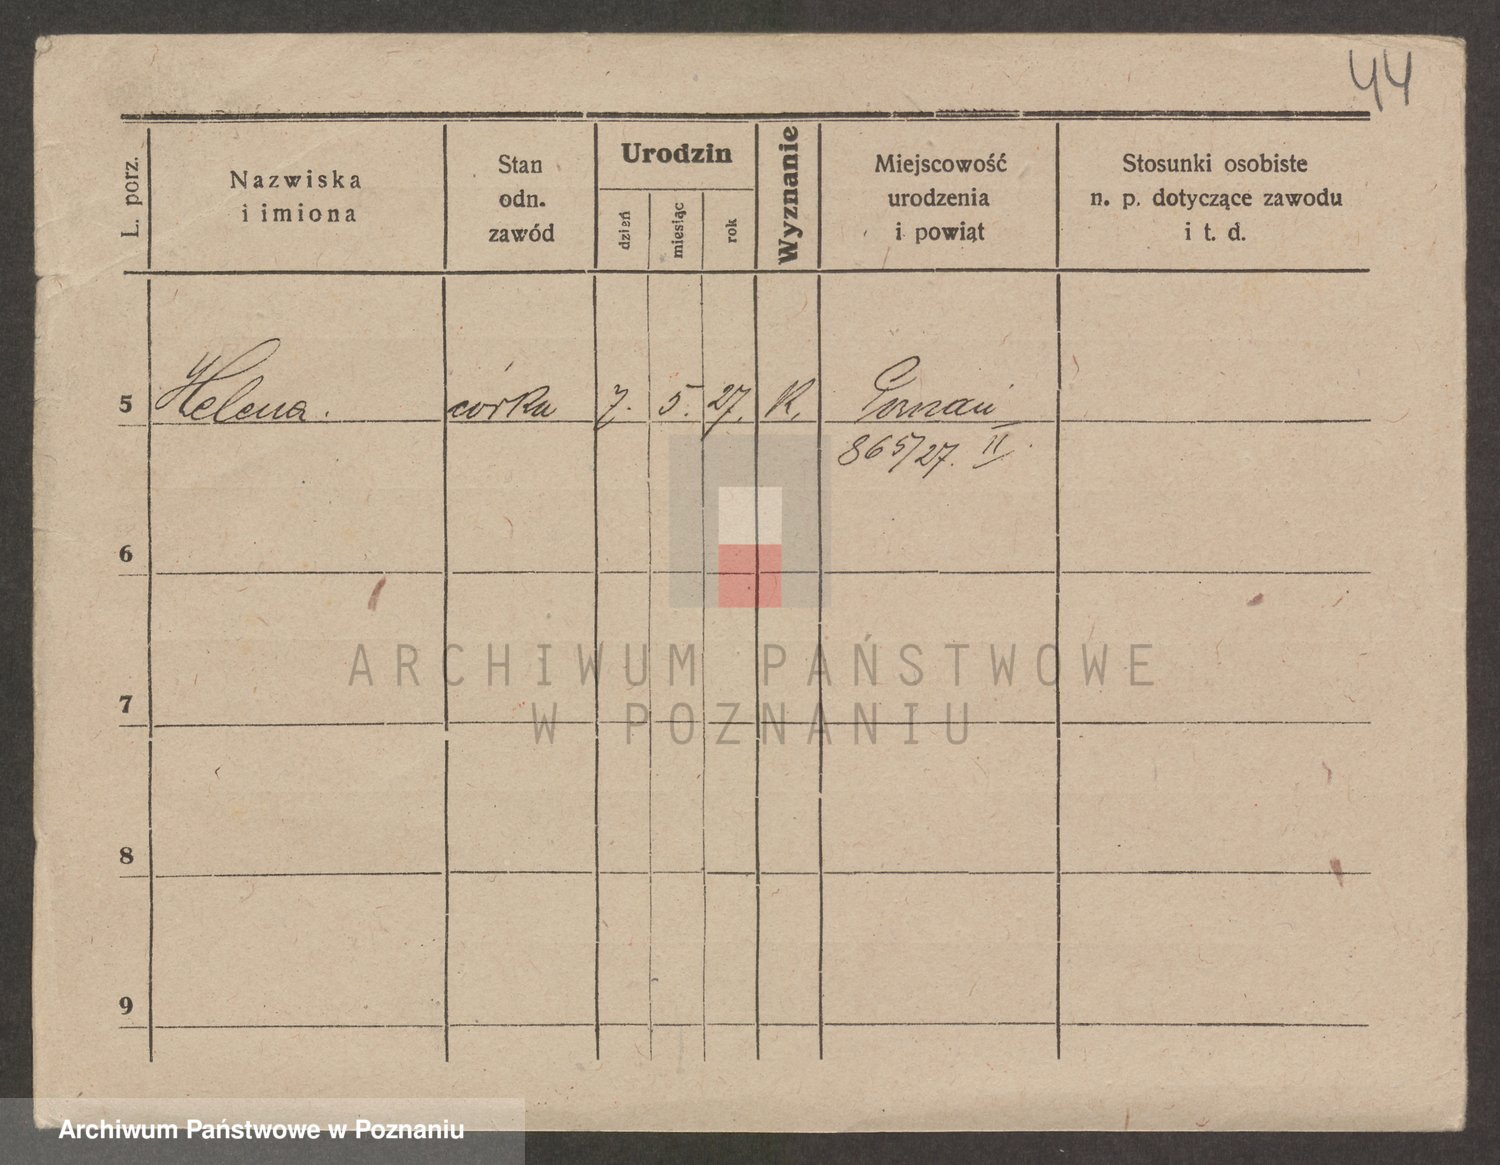 44
L. porz.
Nazwiska
i imiona
Stan
odn.
zawód
Urodzin
dzień
miesiąc
rok
Wyznanie
Miejscowość
urodzenia
i powiąt
Stosunki osobiste
n. p. dotyczące zawodu
i t. d.
5 Helena. córka 7. 5. 27. K. Poznań
865/27. II
6
ARCHIWUM PAŃSTWOWE
7
W POZNANIU
8
9
Archiwum Państwowe w Poznaniu